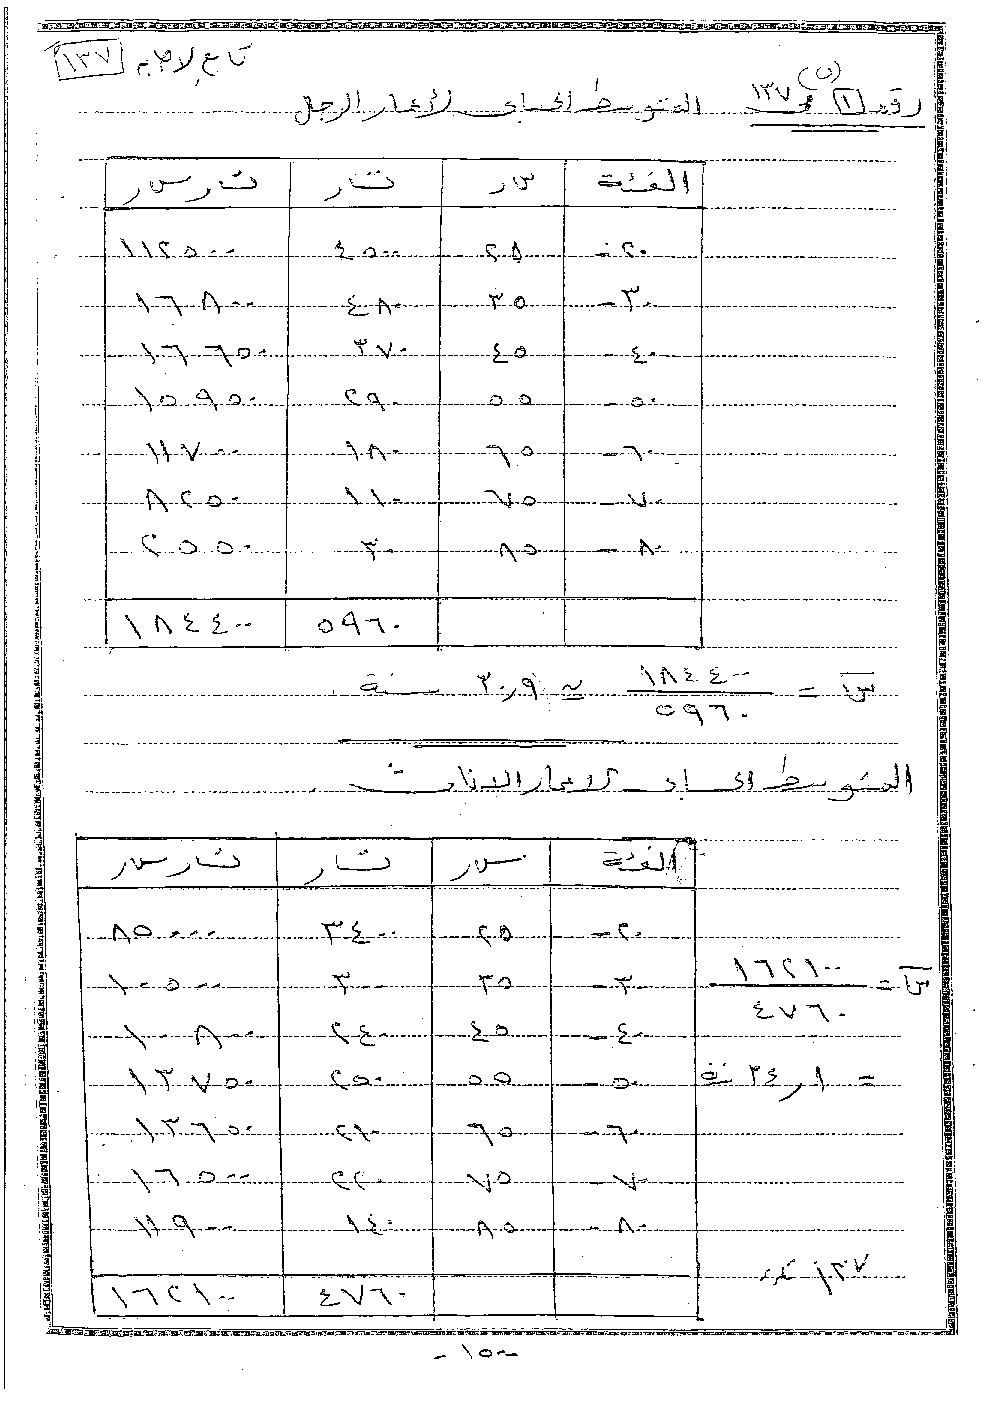 تابع لإجابة ١٣٧
رقم ١ ص ١٣٧ (٥) المتوسط الحسابى لأعمار الرجال
الفئة سر تار تار سر
٢٠- ٢٥ ٤٥٠٠ ١١٢٥٠٠
٣٠- ٣٥ ٤٨٠ ١٦٨٠٠
٤٠- ٤٥ ٣٧٠ ١٦٦٥٠
٥٠- ٥٥ ٢٩٠ ١٥٩٥٠
٦٠- ٦٥ ١٨٠ ١١٧٠٠
٧٠- ٧٥ ١١٠ ٨٢٥٠
٨٠- ٨٥ ٣٠ ٢٥٥٠
٥٩٦٠ ١٨٤٤٠٠
س = ١٨٤٤٠٠ / ٥٩٦٠ ≃ ٣٠,٩ سنة.
المتوسط الحسابى لأعمار الإناث.
الفئة سر تار تار سر
٢٠- ٢٥ ٣٤٠٠ ٨٥٠٠٠
٣٠- ٣٥ ٣٠٠ ١٠٥٠٠
٤٠- ٤٥ ٢٤٠ ١٠٨٠٠
٥٠- ٥٥ ٢٥٠ ١٣٧٥٠
٦٠- ٦٥ ٢١٠ ١٣٦٥٠
٧٠- ٧٥ ٢٢٠ ١٦٥٠٠
٨٠- ٨٥ ١٤٠ ١١٩٠٠
٤٧٦٠ ١٦٢١٠٠
س = ١٦٢١٠٠ / ٤٧٦٠
= ٣٤,١ سنة
-١٥٠-